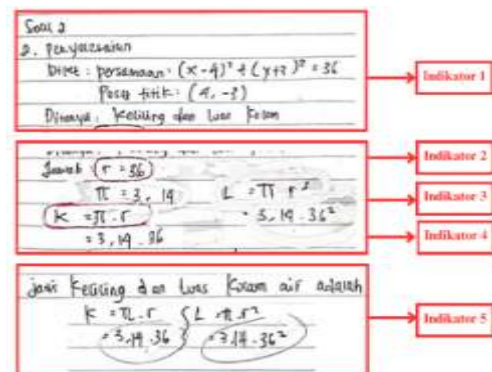 Soal 2
2. Penyelesaian
Diket : persamaan : (x-4)² + (y+3)² = 36
Posisi titik : (4, -3)
Ditanya : Keliling dan Luas Kolam
Indikator 1
Jawab : r = 36
π = 3,14 L = π r²
K = π . r = 3,14 . 36²
= 3,14 . 36
Indikator 2
Indikator 3
Indikator 4
jadi Keliling dan Luas Kolam air adalah
K = π . r L = π . r²
= 3,14 . 36 = 3,14 . 36²
Indikator 5